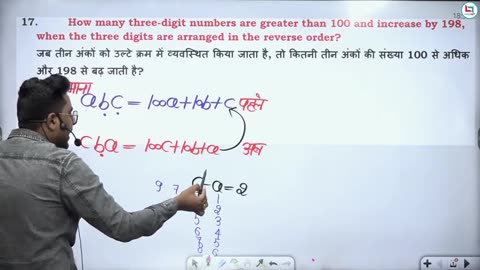 17. How many three-digit numbers are greater than 100 and increase by 198,
when the three digits are arranged in the reverse order?
जब तीन अंकों को उल्टे क्रम में व्यवस्थित किया जाता है, तो कितनी तीन अंकों की संख्या 100 से अधिक
और 198 से बढ़ जाती है?
माना
abc = 100a+10b+c पहले
cba = 100c+10b+a अब
9 7 c-a=2
1
2
5 3
6 4
7 5
8 6